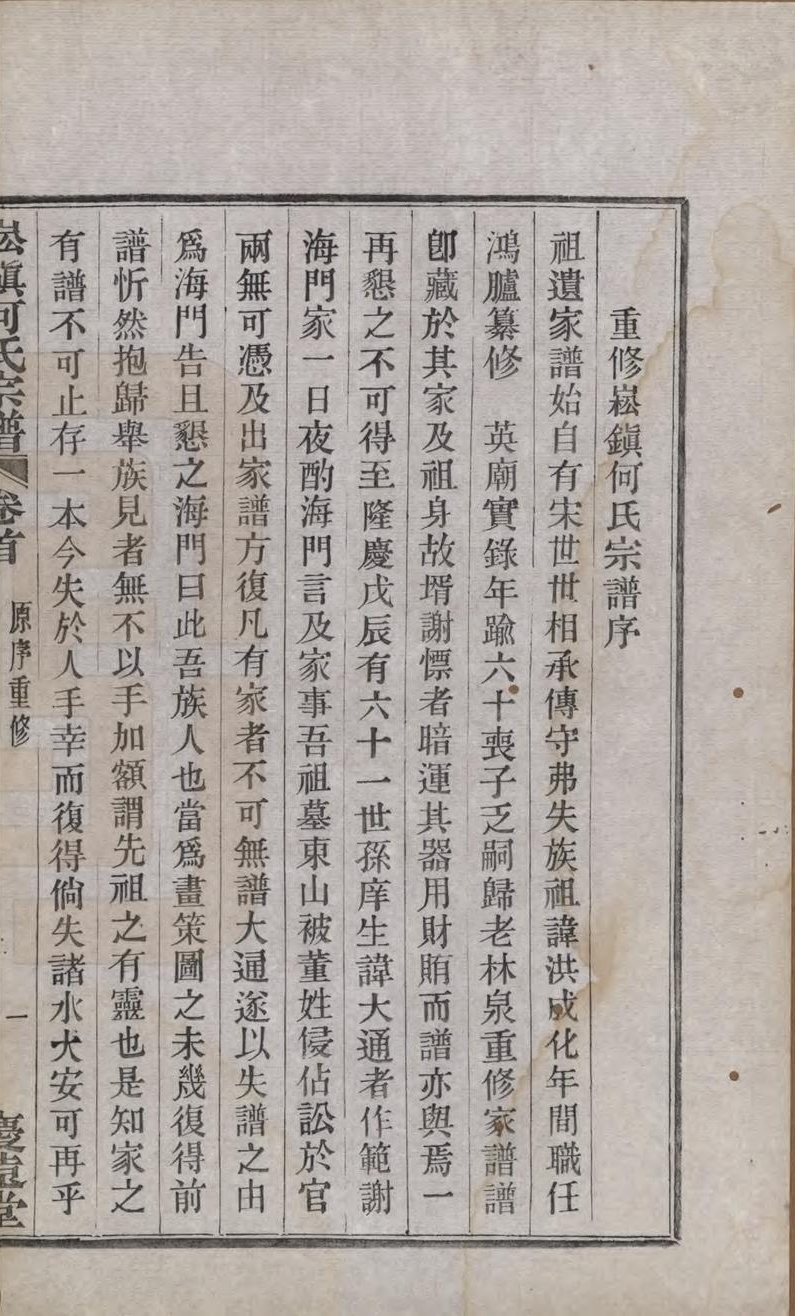 重修崧鎭何氏宗譜序
祖遺家譜始自有宋世世相承傳守弗失族祖諱洪成化年間職任
鴻臚纂修　英廟實錄年踰六十喪子乏嗣歸老林泉重修家譜譜
卽藏於其家及祖身故壻謝慓者暗運其器用財賄而譜亦與焉一
再懇之不可得至隆慶戊辰有六十一世孫庠生諱大通者作範謝
海門家一日夜酌海門言及家事吾祖墓東山被董姓侵佔訟於官
兩無可憑及出家譜方復凡有家者不可無譜大通遂以失譜之由
爲海門告且懇之海門曰此吾族人也當爲畫策圖之未幾復得前
譜忻然抱歸舉族見者無不以手加額謂先祖之有靈也是知家之
有譜不可止存一本今失於人手幸而復得倘失諸水火安可再乎
崧鎭何氏宗譜 卷首 原序重修 一 慶遠堂